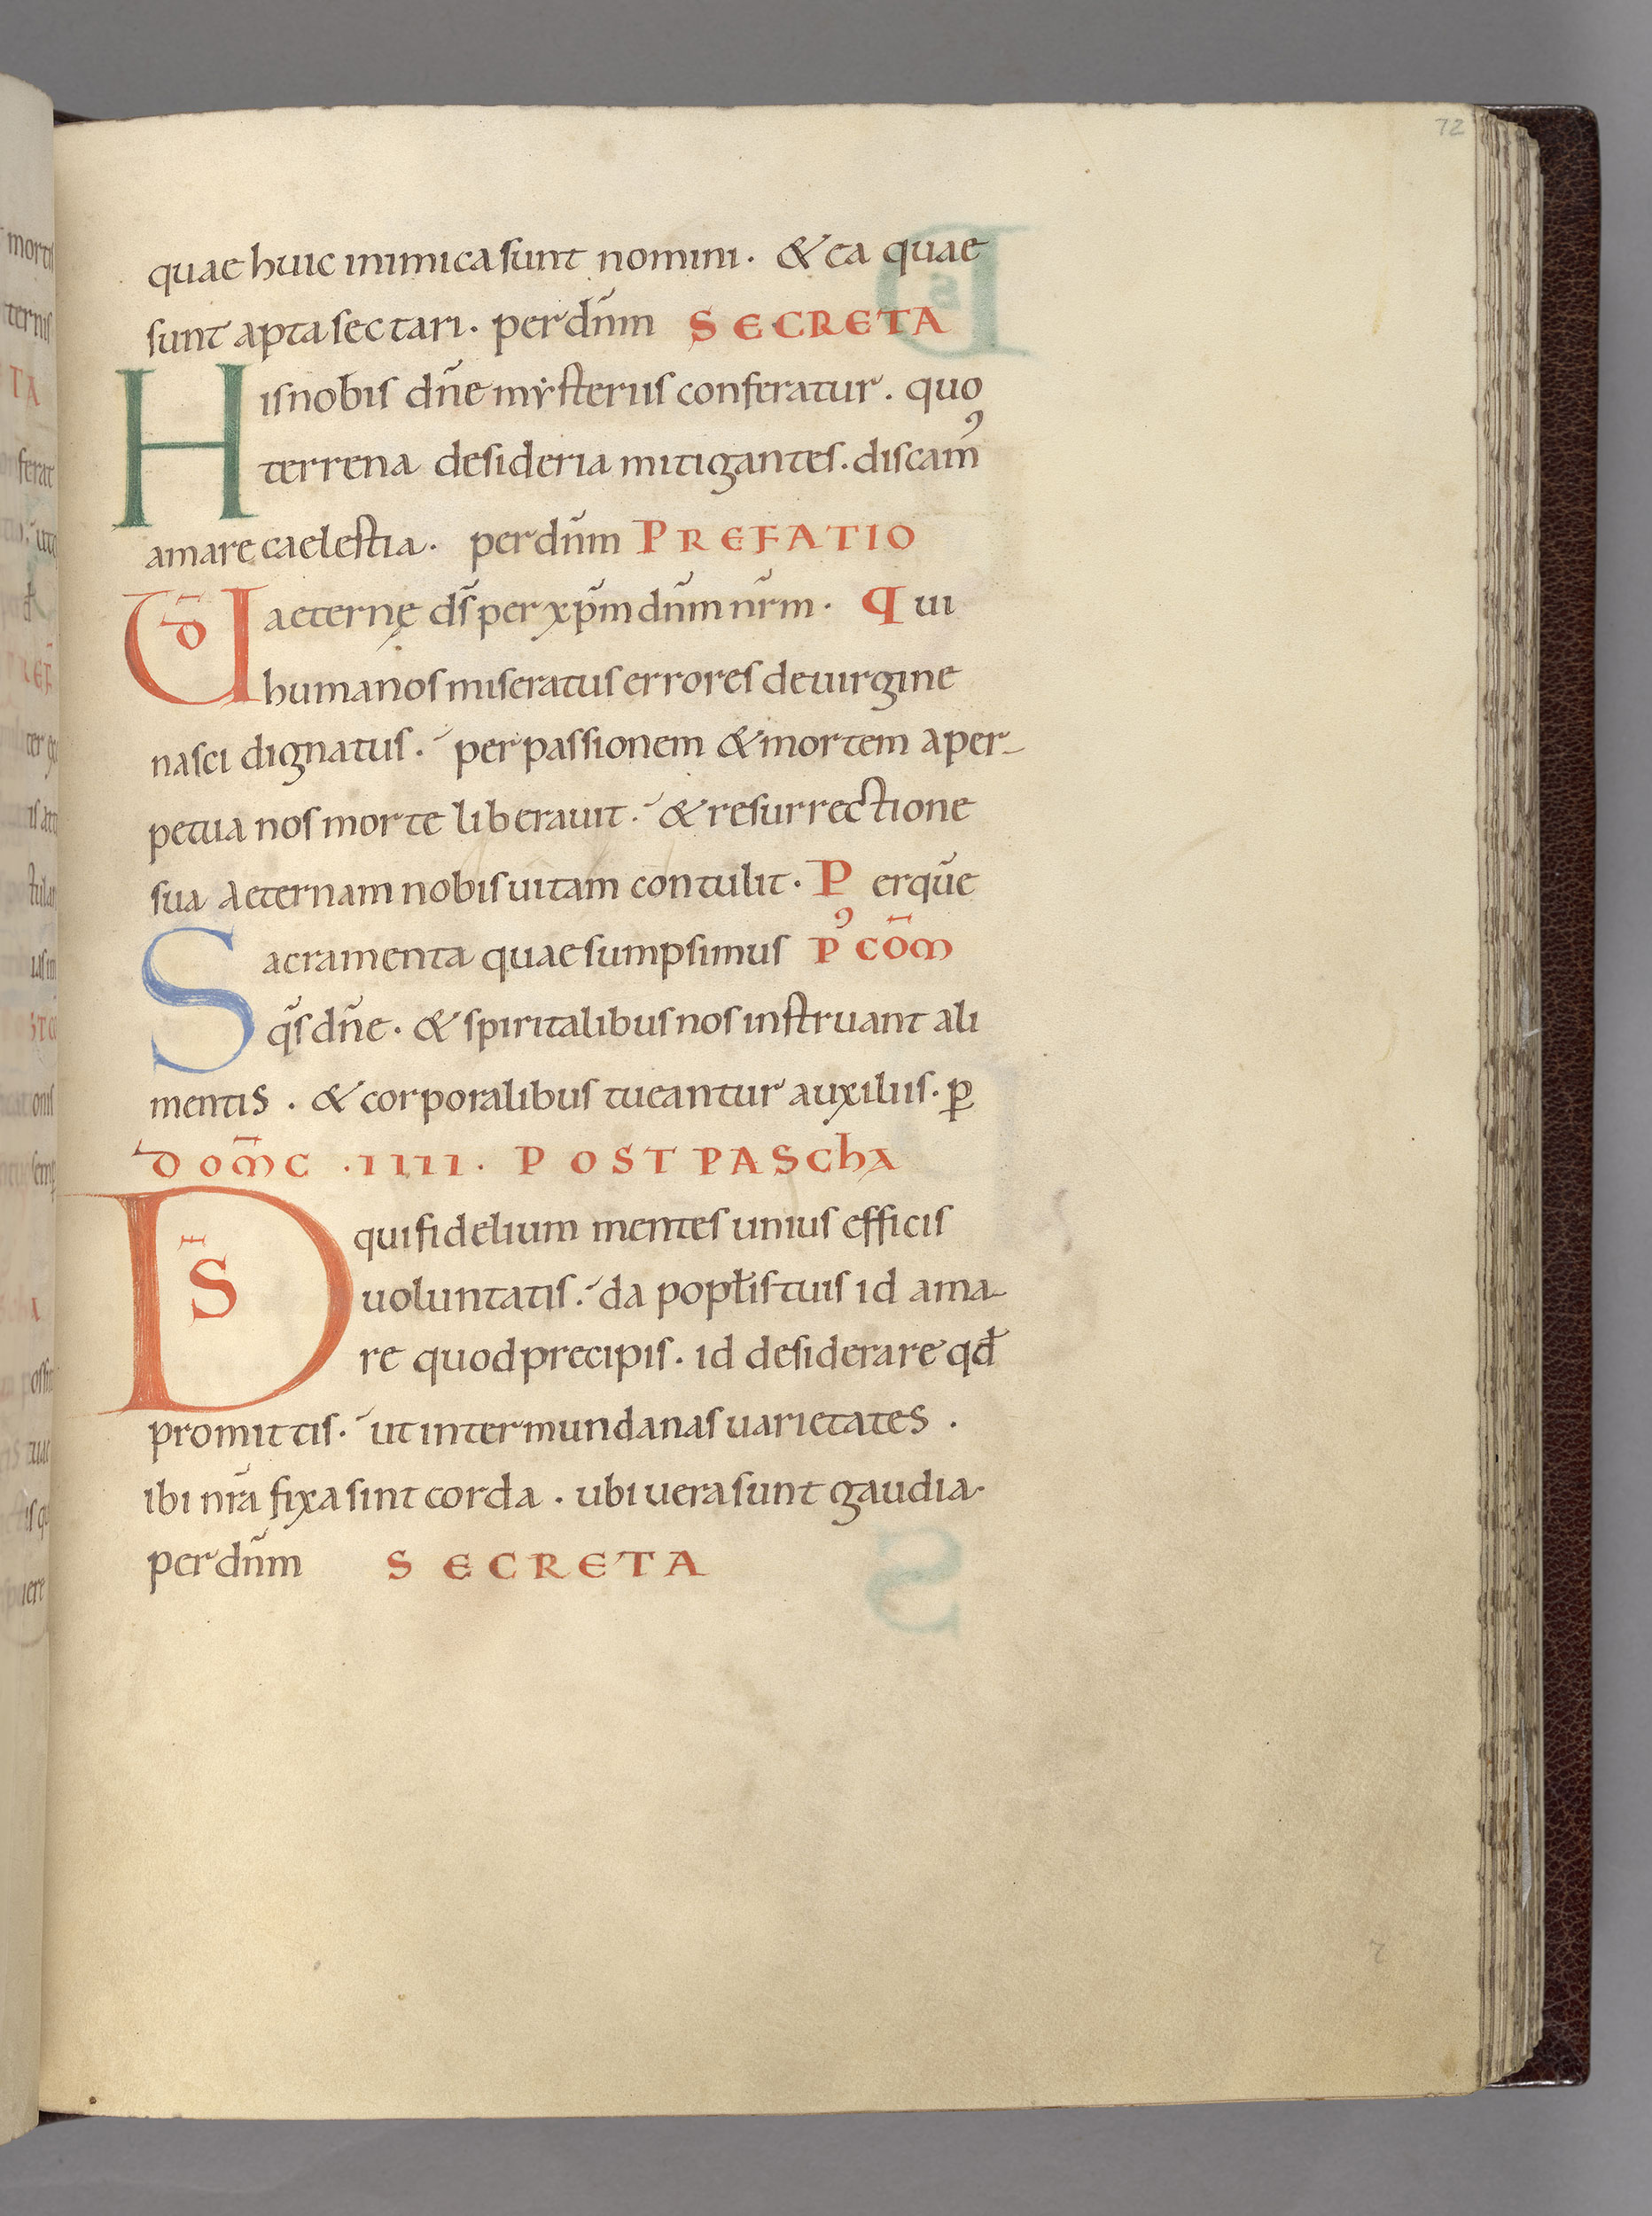 72
quae huic inimica sunt nomini. & ea quae
sunt apta sectari. per dn̄m SECRETA
His nobis dn̄e mẏsteriis conferatur. quo
terrena desideria mitigantes. discamꝰ
amare caelestia. per dn̄m PREFATIO
UD̄ aeternę ds̄ per xp̄m dn̄m nr̄m. Qui
humanos miseratus errores de uirgine
nasci dignatus. per passionem & mortem a per-
petua nos morte liberauit. & resurrectione
sua aeternam nobis uitam contulit. P erquē
Sacramenta quae sumpsimus Pꝰ CŌM
qs̄ dn̄e. & spiritalibus nos instruant ali
mentis. & corporalibus tueantur auxiliis. ꝑ
DOM̄C .IIII. POST PASChA
DS̄ qui fidelium mentes unius efficis
uoluntatis. da popłis tuis id ama-
re quod precipis. id desiderare qđ
promittis. ut inter mundanas uarietates.
ibi nr̄a fixa sint corda. ubi uera sunt gaudia.
per dn̄m SECRETA